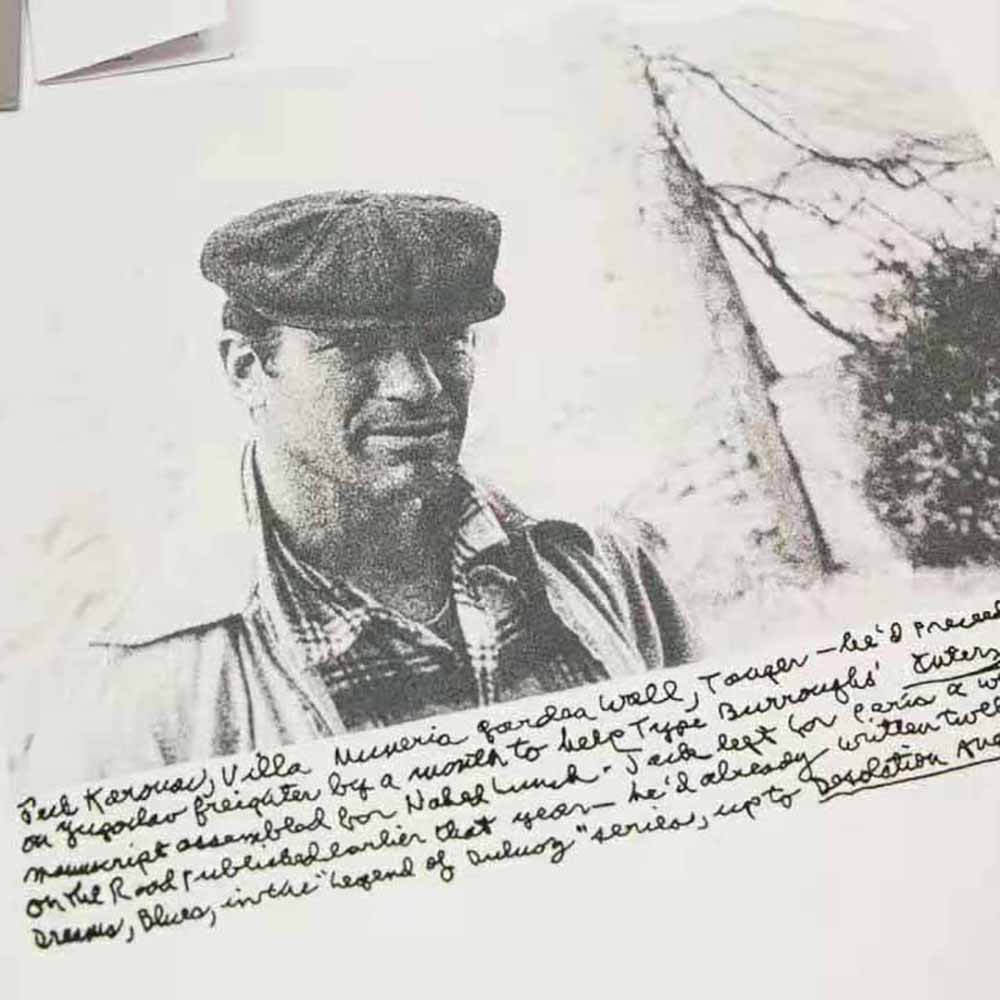 Jack Kerouac, Villa Muneria garden wall, Tanger — he'd preceed
on Yugoslav freighter by a month to help Type Burroughs' Interz
manuscript assembled for Naked Lunch. Jack left for Paris a w
on the Road published earlier that year — he'd already written twel
Dreams, Blues, in the "Legend of Duluoz" series, up to Desolation Ang